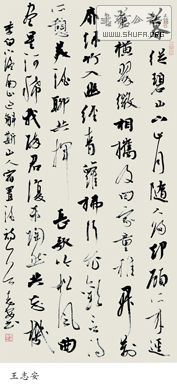 暮從碧山下山月隨人歸却顧所來徑
蒼蒼橫翠微相攜及田家童稚開荆
扉綠竹入幽徑青蘿拂行衣歡言得
所憩美酒聊共揮長歌吟松風曲
盡星河稀我醉君復樂陶然共忘機
李白下終南山過斛斯山人宿置酒詩
王志安